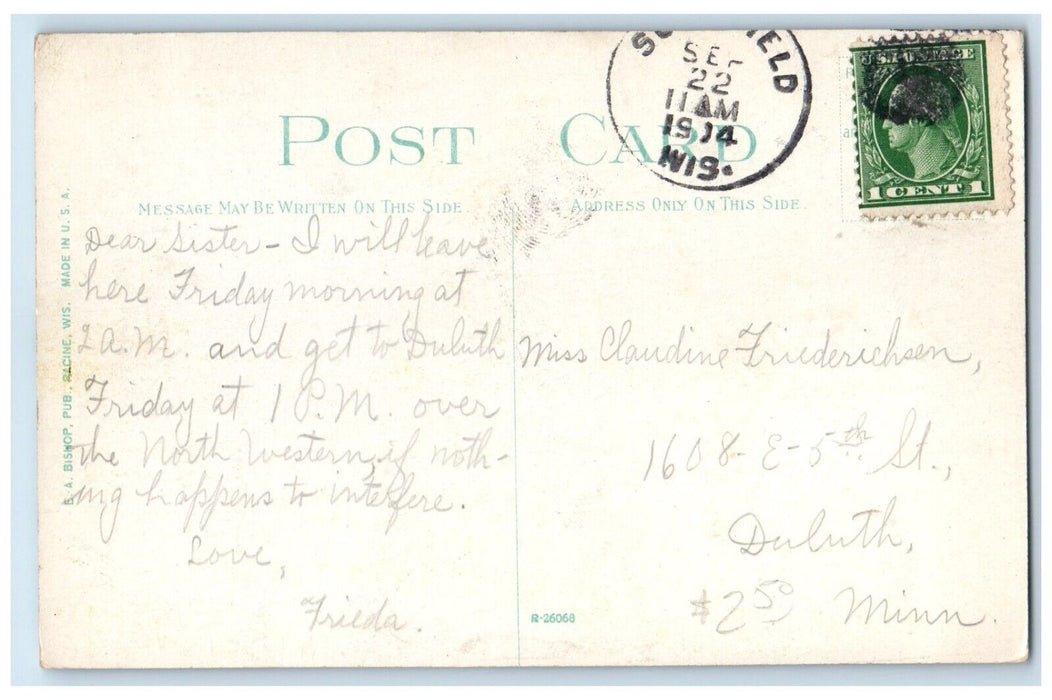 POST CARD
MESSAGE MAY BE WRITTEN ON THIS SIDE.
ADDRESS ONLY ON THIS SIDE.
SEP
22
11 AM
1914
WIS.
U.S. POSTAGE
1 CENT 1
E. A. BISHOP, PUB., RACINE, WIS. MADE IN U. S. A.
Dear Sister - I will leave
here Friday morning at
2 A.M. and get to Duluth
Friday at 1 P.M. over
the North Western, if noth-
ing happens to interfere.
Love,
Frieda.
Miss Claudine Friederichsen,
1608 - E - 5th St.,
Duluth,
Minn.
$2 50
R-26068